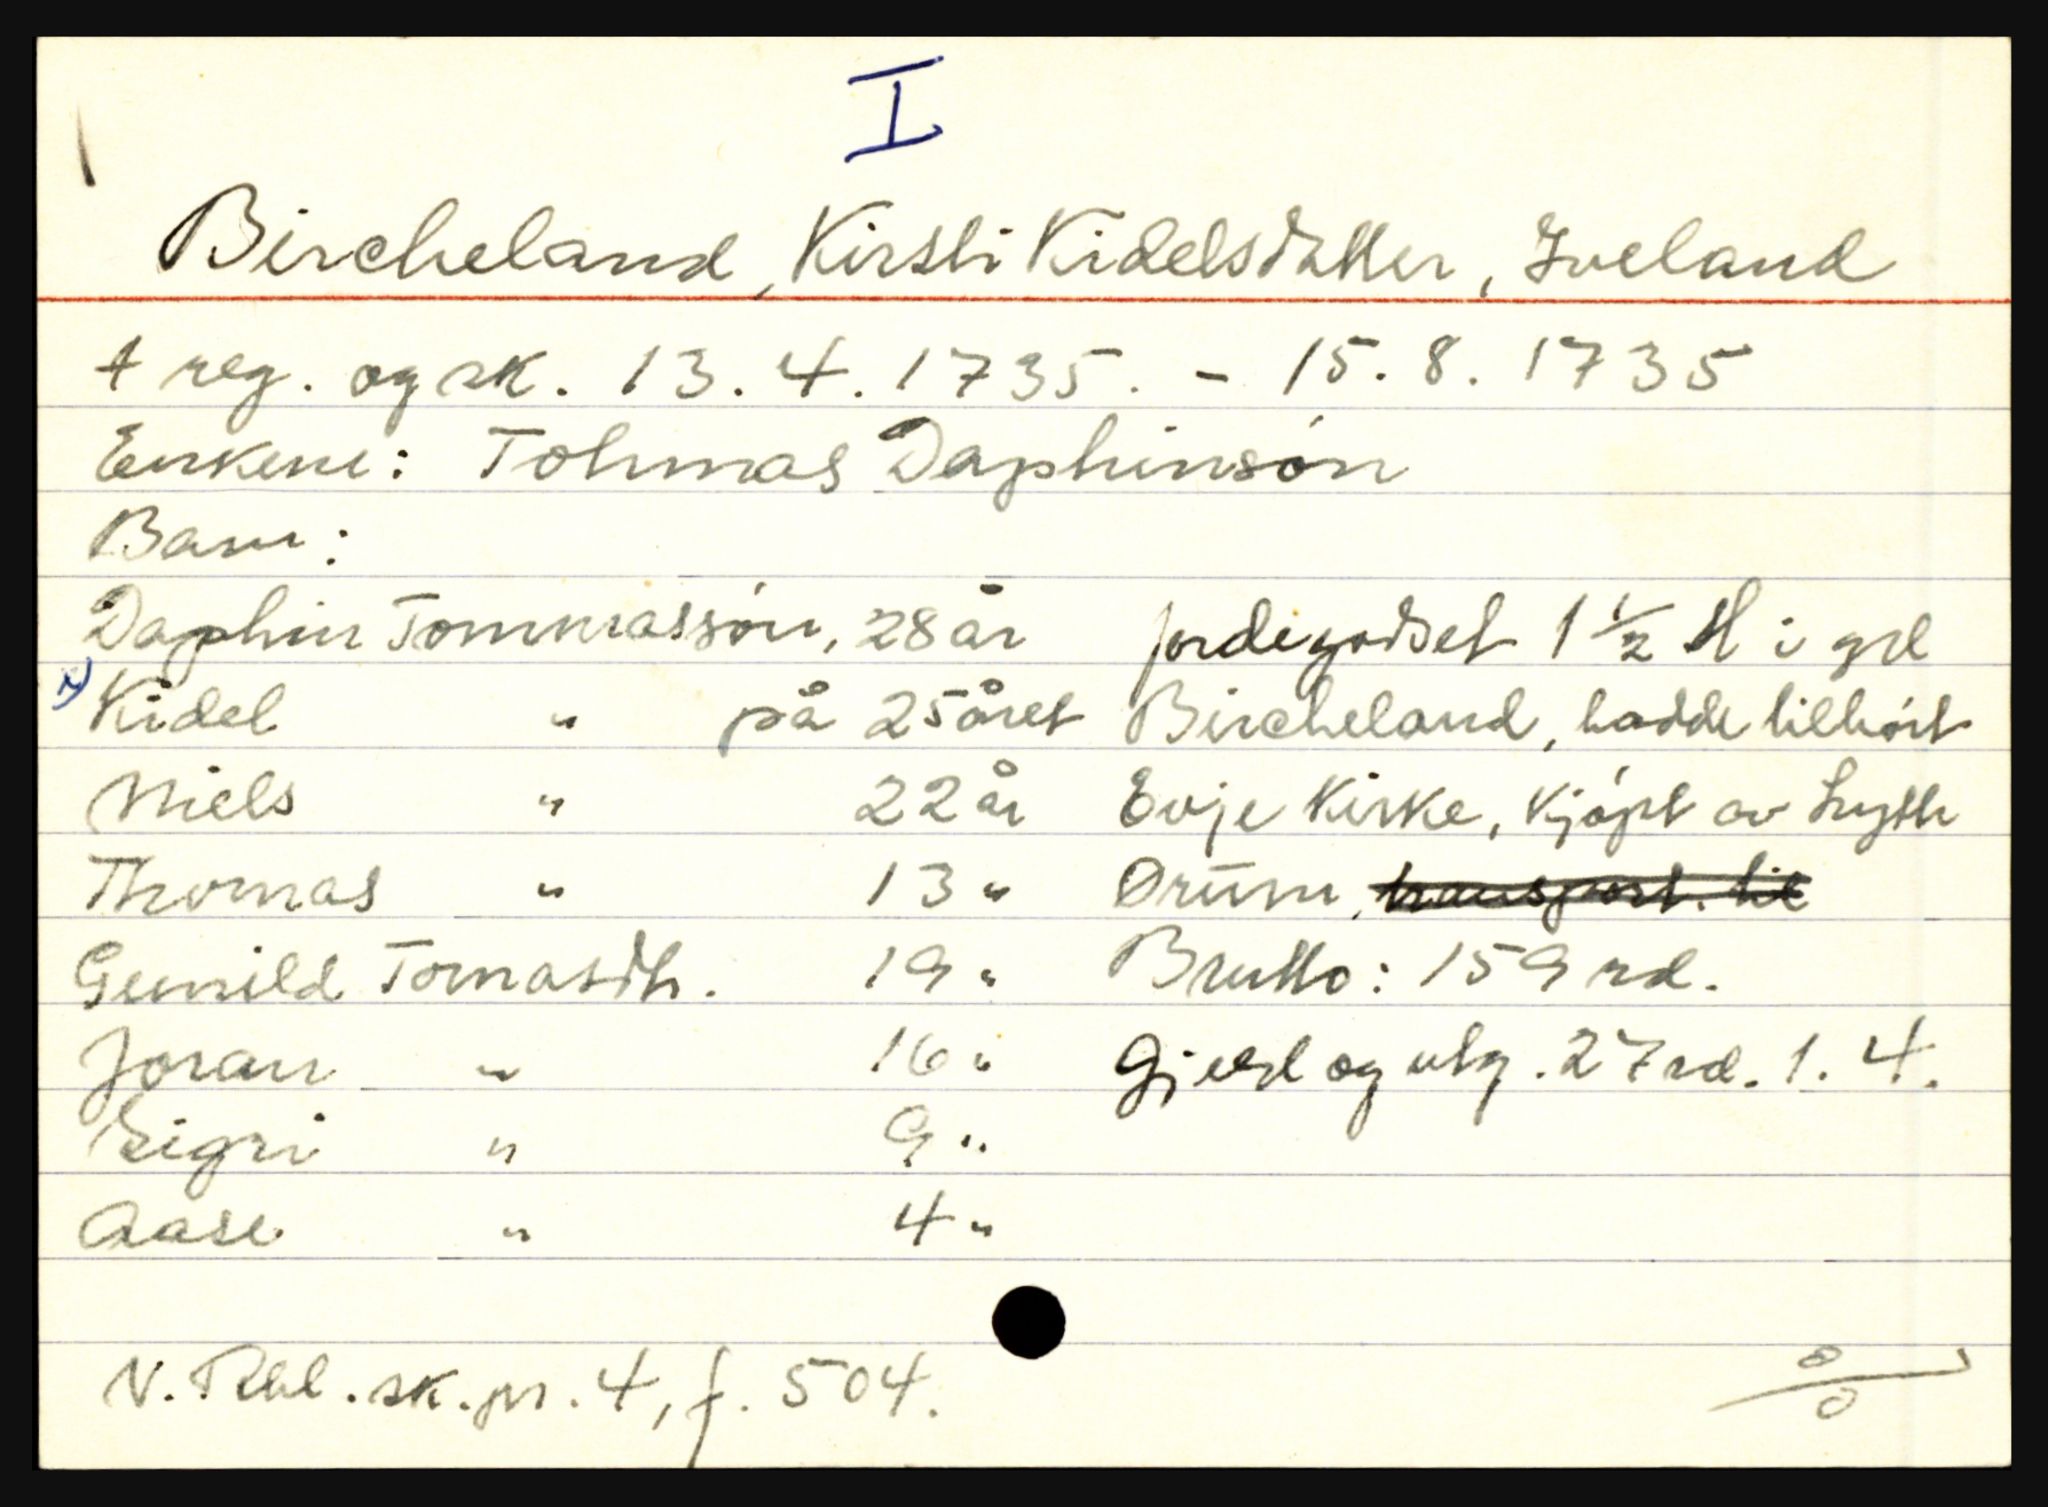 I
Bircheland, Kirsti Kidelsdatter, Iveland
† reg. og sk. 13.4.1735. - 15.8.1735
Enkem: Tohmas Daphinsøn
Barn:
Daphin Tommassøn, 28 år jordegodset 1 1/2 H i grd
Kidel " på 25 året Bircheland, hadde tilhørt
Niels " 22 år Evje Kirke, kjøpt av Lyth
Thomas " 13 " Drūm, transport. til
Gunild Tomasdtr. 19 " Brutto: 159 rd.
Joran " 16 " Gjeld og utg. 27 rd. 1. 4.
Sigri " 9 "
Aase " 4 "
N. Rbl. sk. pr. 4, f. 504.